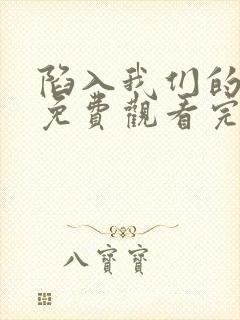 陷入我们的
免费觀看完
八寶寶